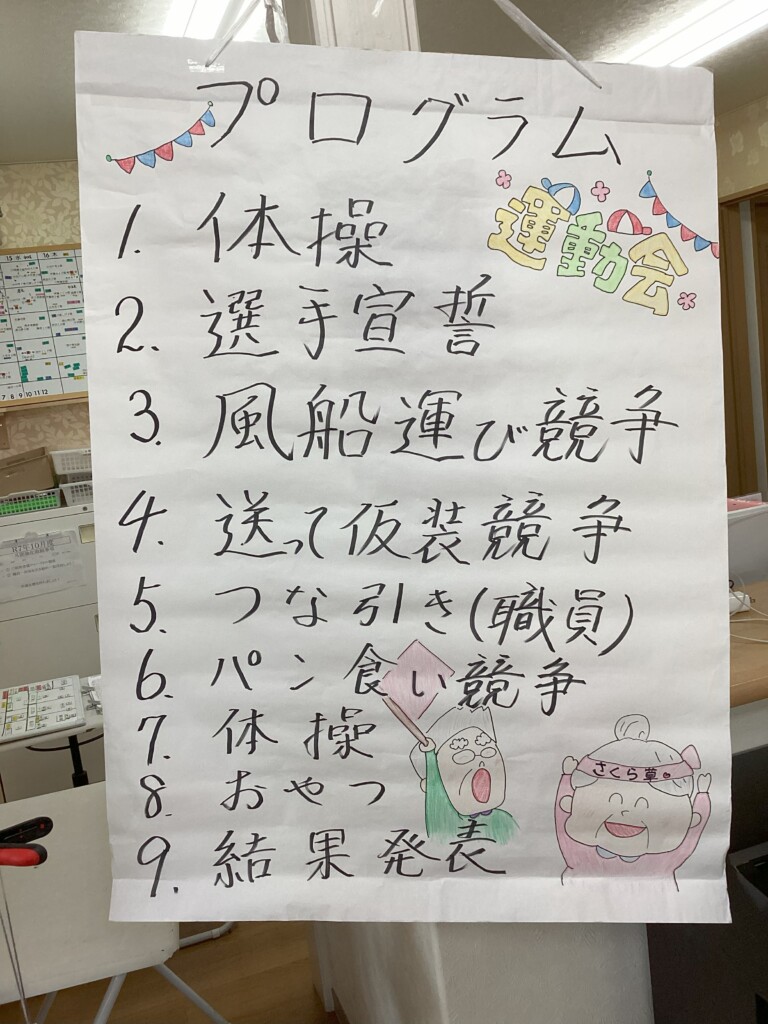 プログラム
運動会
1. 体操
2. 選手宣誓
3. 風船運び競争
4. 送って仮装競争
5. つな引き(職員)
6. パン食い競争
7. 体操
8. おやつ
9. 結果発表
さくら草